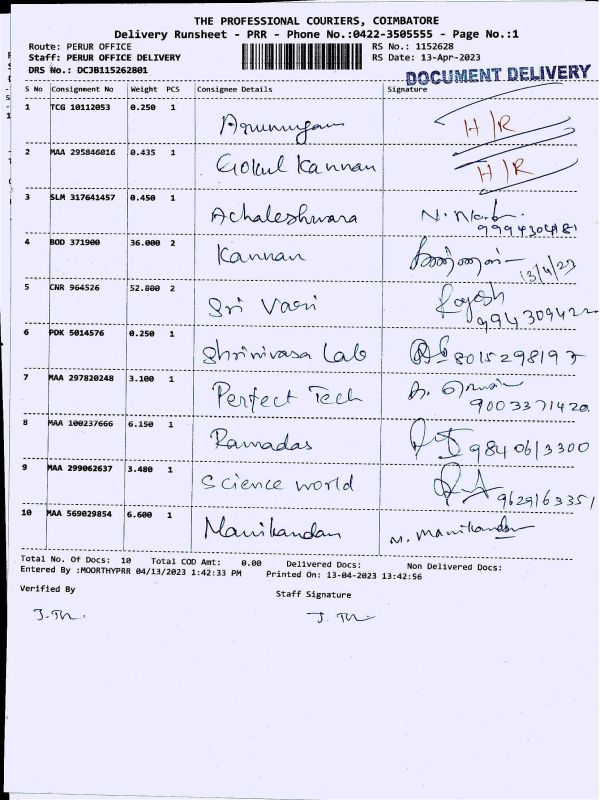 THE PROFESSIONAL COURIERS, COIMBATORE
Delivery Runsheet - PRR - Phone No.:0422-3505555 - Page No.:1
Route: PERUR OFFICE RS No.: 1152628
Staff: PERUR OFFICE DELIVERY RS Date: 13-Apr-2023
DRS No.: DCJB115262801 DOCUMENT DELIVERY
S No Consignment No Weight PCS Consignee Details Signature
1 TCG 10112053 0.250 1 Arumugam H/R
2 MAA 295846016 0.435 1 Gokul Kannan H/R
3 SLM 317641457 0.450 1 Achaleshwara
9994304181
4 BOD 371900 36.000 2 Kannan
13/4/23
5 CNR 964526 52.800 2 Sri Vari
99430942
6 PDK 5014576 0.250 1 Shrinivasa Lab 8015298197
7 MAA 297820248 3.100 1 Perfect Tech
9003371420
8 MAA 100237666 6.150 1 Ramadas 9840613300
9 MAA 299062637 3.480 1 Science world
9629163351
10 MAA 569029854 6.600 1 Manikandan M. Manikandan
Total No. Of Docs: 10 Total COD Amt: 0.00 Delivered Docs: Non Delivered Docs:
Entered By :MOORTHYPRR 04/13/2023 1:42:33 PM Printed On: 13-04-2023 13:42:56
Verified By Staff Signature